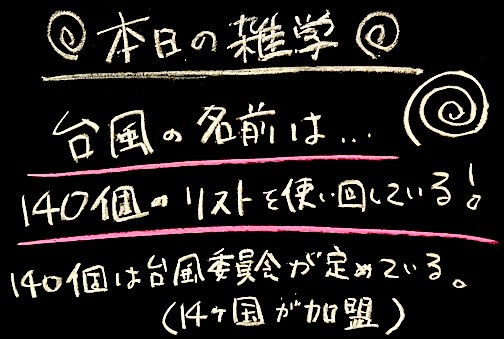 本日の雑学
台風の名前は...
140個のリストを使い回している!
140個は台風委員会が定めている。
(14ヶ国が加盟)